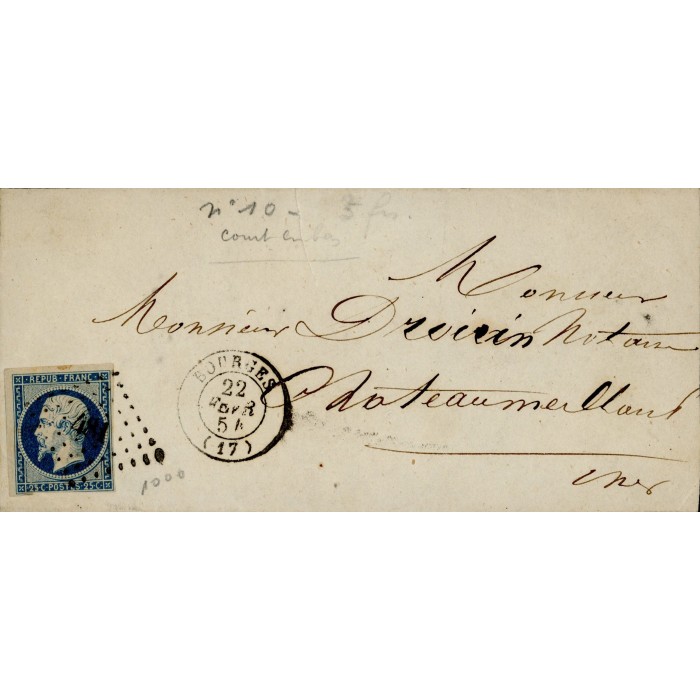 n° 10 - 5 frs.
court en bas
Monsieur
Monsieur Notaire
Chateaumeillant
Cher
REPUB FRANC
25·C·POSTES·25·C
BOURGES
22
FEVR
54
(17)
1000